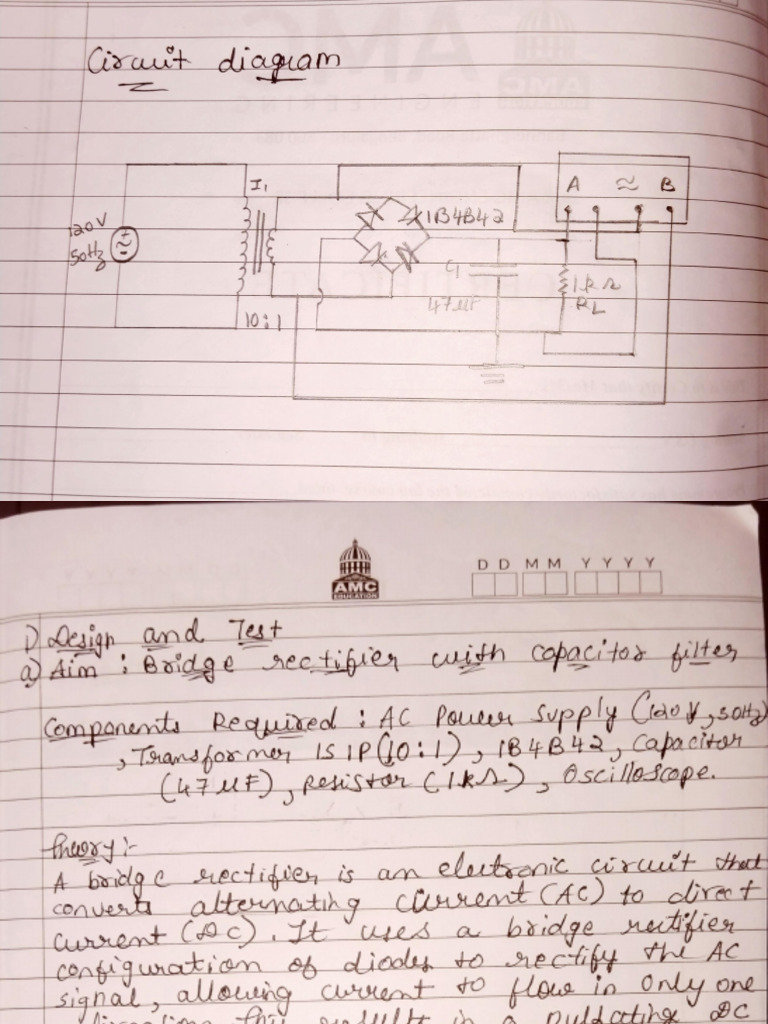 Circuit diagram
I1
A ≈ B
120V
50Hz
1B4B42
C1
47uF
1kΩ
RL
10:1
AMC
EDUCATION
DD MM YYYY
1) Design and Test
a) Aim : Bridge rectifier with capacitor filter
Components Required : AC Power Supply (120V, 50Hz)
, Transformer 1S1P(10:1), 1B4B42, Capacitor
(47uF), Resistor (1kΩ), Oscilloscope.
Theory:-
A bridge rectifier is an electronic circuit that
converts alternating current (AC) to direct
current (DC). It uses a bridge rectifier
configuration of diodes to rectify the AC
signal, allowing current to flow in only one
this results in a pulsating DC